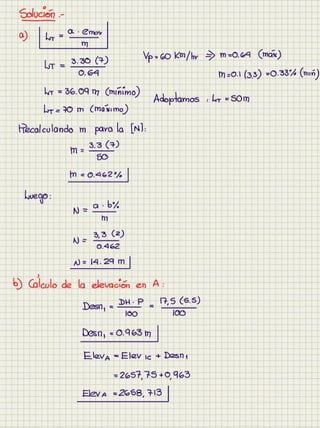 Solución :-
a) LT = a · emax / m
Vp = 60 Km/hr ⇒ m=0.64 (máx)
LT = 3.30 (7) / 0.64
m=0.1 (3.3) =0.33% (mín)
LT = 36.09 m (mínimo)
LT = 70 m (máximo)
Adoptamos : LT = 50m
Recalculando m para la [N]:
m = 3.3 (7) / 50
m = 0.462%
Luego:
N = a · b% / m
N = 3,3 (2) / 0.462
N = 14.29 m
b) Cálculo de la elevación en A:
Desn₁ = DH · P / 100 = 17,5 (5.5) / 100
Desn₁ = 0.963 m
Elev A = Elev IC + Desn₁
= 2657,75 + 0,963
Elev A = 2658,713